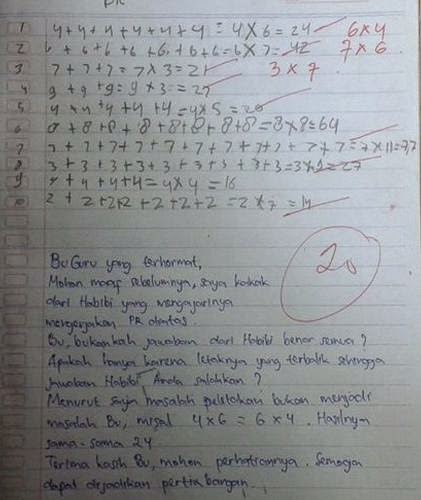 PR
1 4+4+4+4+4+4 = 4×6 = 24 6×4
2 6+6+6+6+6+6+6=6×7=42 7×6
3 7+7+7=7×3=21 3×7
4 9+9+9=9×3=27
5 4+4+4+4+4=4×5=20
6 8+8+8+8+8+8+8+8=8×8=64
7 7+7+7+7+7+7+7+7+7+7+7=7×11=77
8 3+3+3+3+3+3+3+3+3=3×9=27
9 4+4+4+4=4×4=16
10 2+2+2+2+2+2+2=2×7=14
20
Bu Guru yang terhormat,
Mohon maaf sebelumnya, saya kakak
dari Habibi yang mengajarinya
mengerjakan PR diatas.
Bu, bukankah jawaban dari Habibi benar semua?
Apakah hanya karena letaknya yang terbalik sehingga
jawaban Habibi Anda salahkan?
Menurut saya masalah peletakan bukan menjadi
masalah Bu, misal 4×6 = 6×4. Hasilnya
sama-sama 24
Terima kasih Bu, mohon perhatiannya. Semoga
dapat dijadikan pertimbangan.